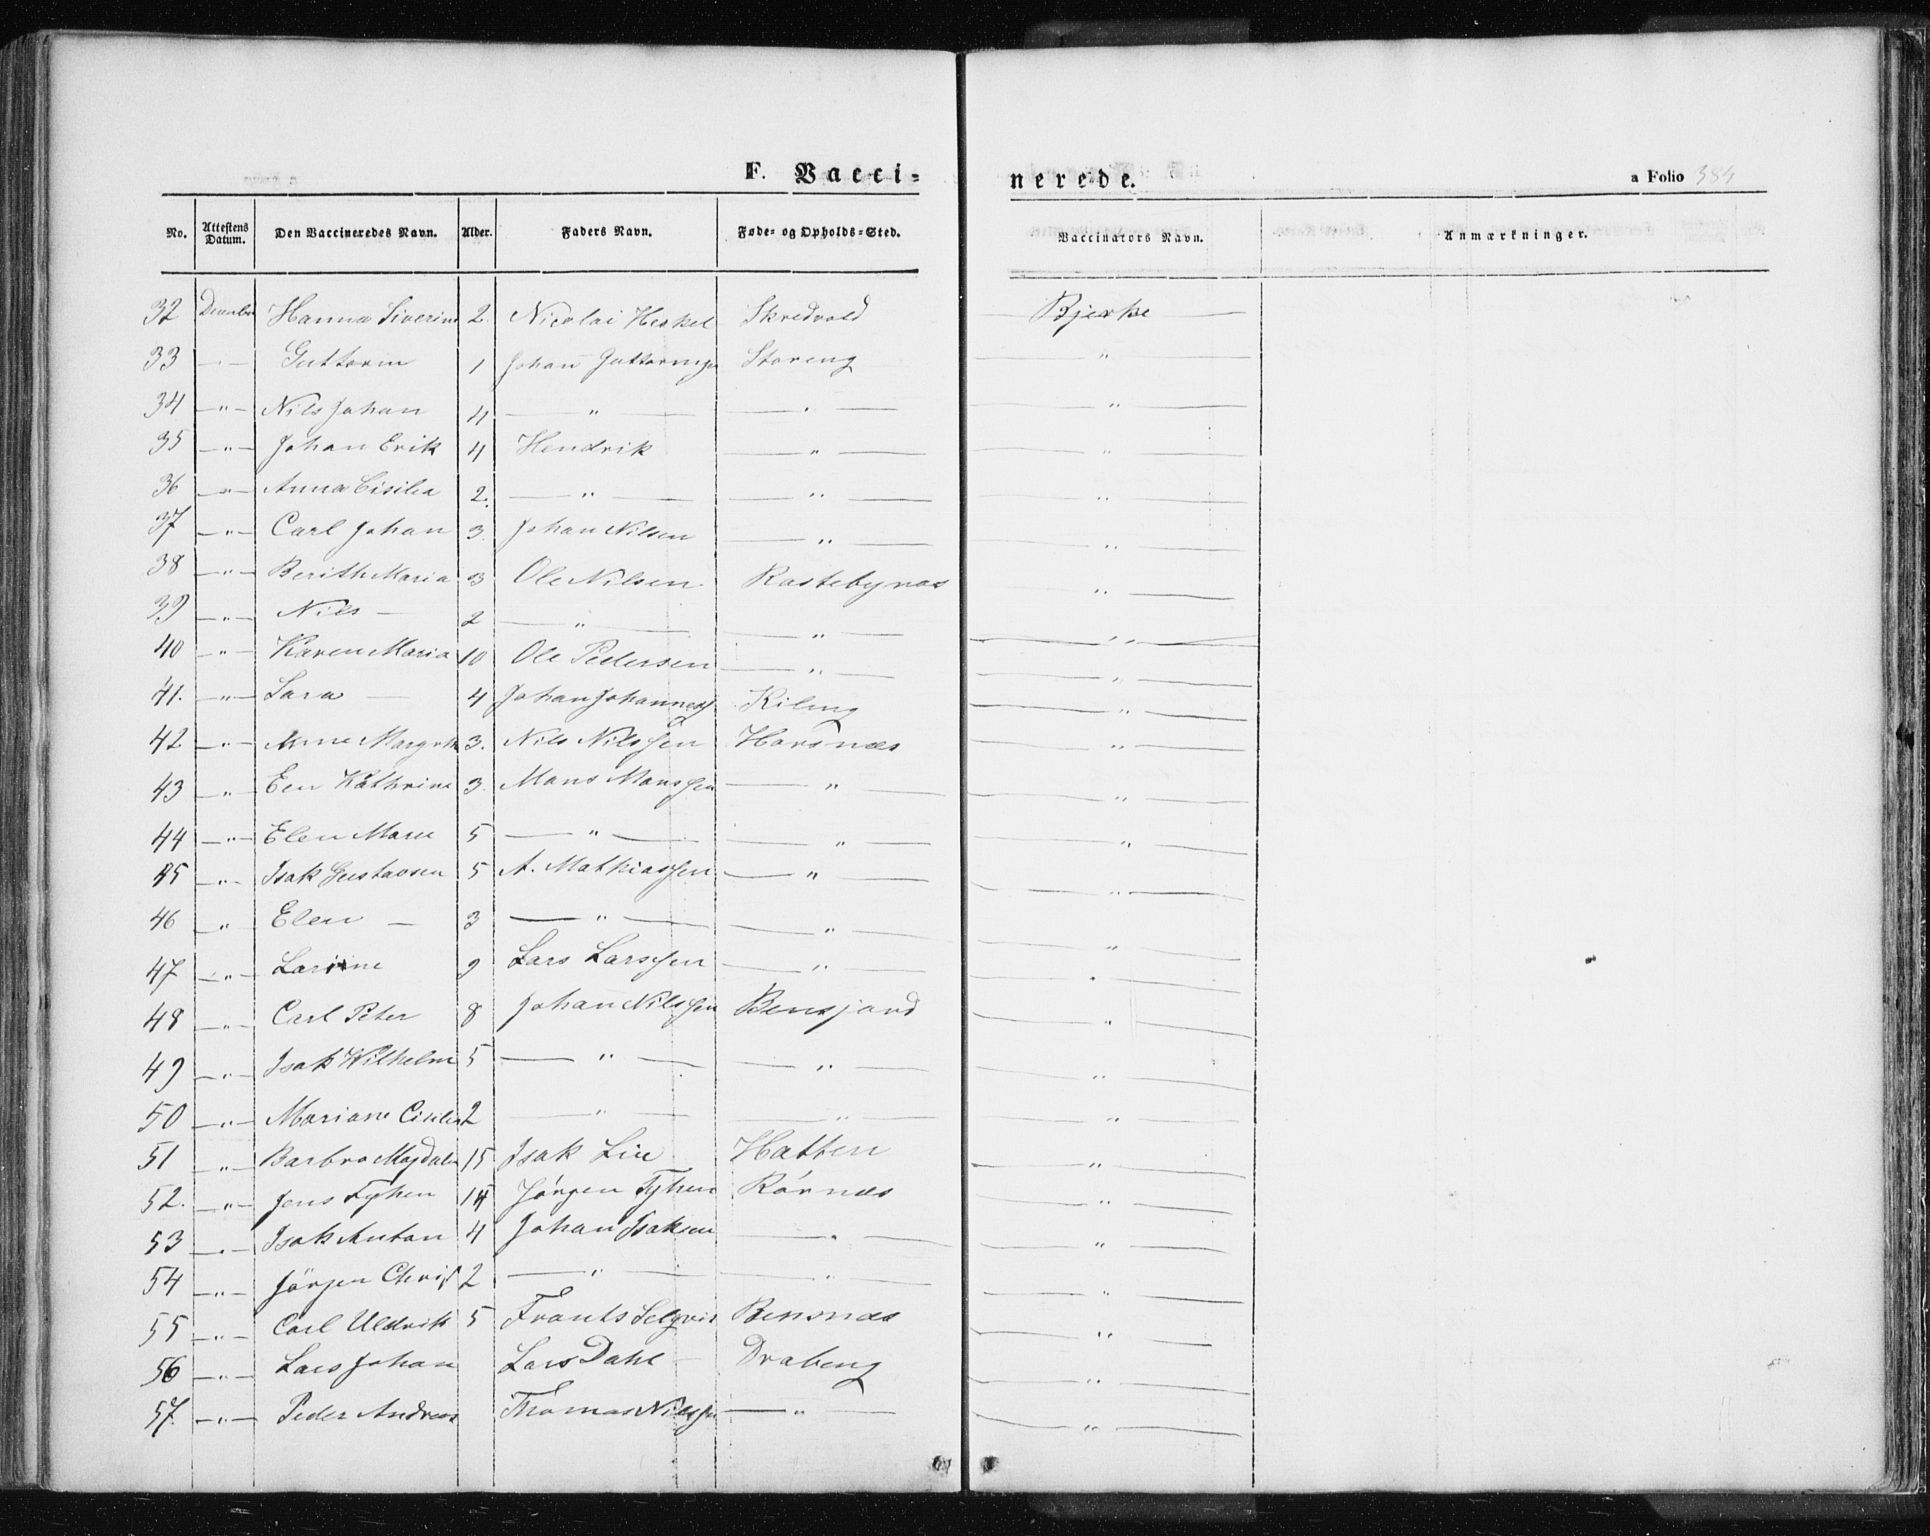 F. Vacci=nerede.
a Folio 384
No. Attestens Datum. Den Vaccineredes Navn. Alder. Faders Navn. Føde- og Opholds-Sted. Vaccinators Navn. Anmærkninger.
32 Decmber Hanna Siverine 2. Nicolai Heskel Skredvold Bjerke
33 Guttorm 1 Johan Storeng "
34 " Nils Johan 4 " " "
35 " Johan Erik 4 Hendrik " "
36 " Anna Cisilia 2. " " "
37 " Carl Johan 3. Johan Nilsen " "
38 " Berith Maria 3 Ole Nilsen Rastebynæs "
39 " Nils 2 " " "
40 " Karen Maria 10 Ole Pedersen " "
41. " Sara 4 Johan Johannes Kileng "
42 " Anne Margreth 3. Nils Nilssen Horsnæs "
43 " Een Kathrine 3. Mons Monssen " "
44 " Elen Marie 5 " " "
45 " Isak Gustavsen 5 A. Mathiassen " "
46 " Elen 3 " " "
47 " Larine 9 Lars Larssen " "
48 " Carl Peter 8 Johan Nilssen Bensjord "
49 " Isak Wilhelm 5 " " "
50 " Mariane Cisilia 2 " " "
51 " Barbro Magdalen 15 Isak Lie Hatten "
52. " Jens Fyhen 14 Jørgen Fyhen Rørnæs "
53 " Isak Anton 4 Johan Isaksen " "
54 " Jørgen Christ 2 " " "
55 " Carl Uldrik 5 Frants Bensnæs "
56 " Lars Johan Lars Dahl Drabeng "
57. " Peder Andreas Thomas Nilssen " "